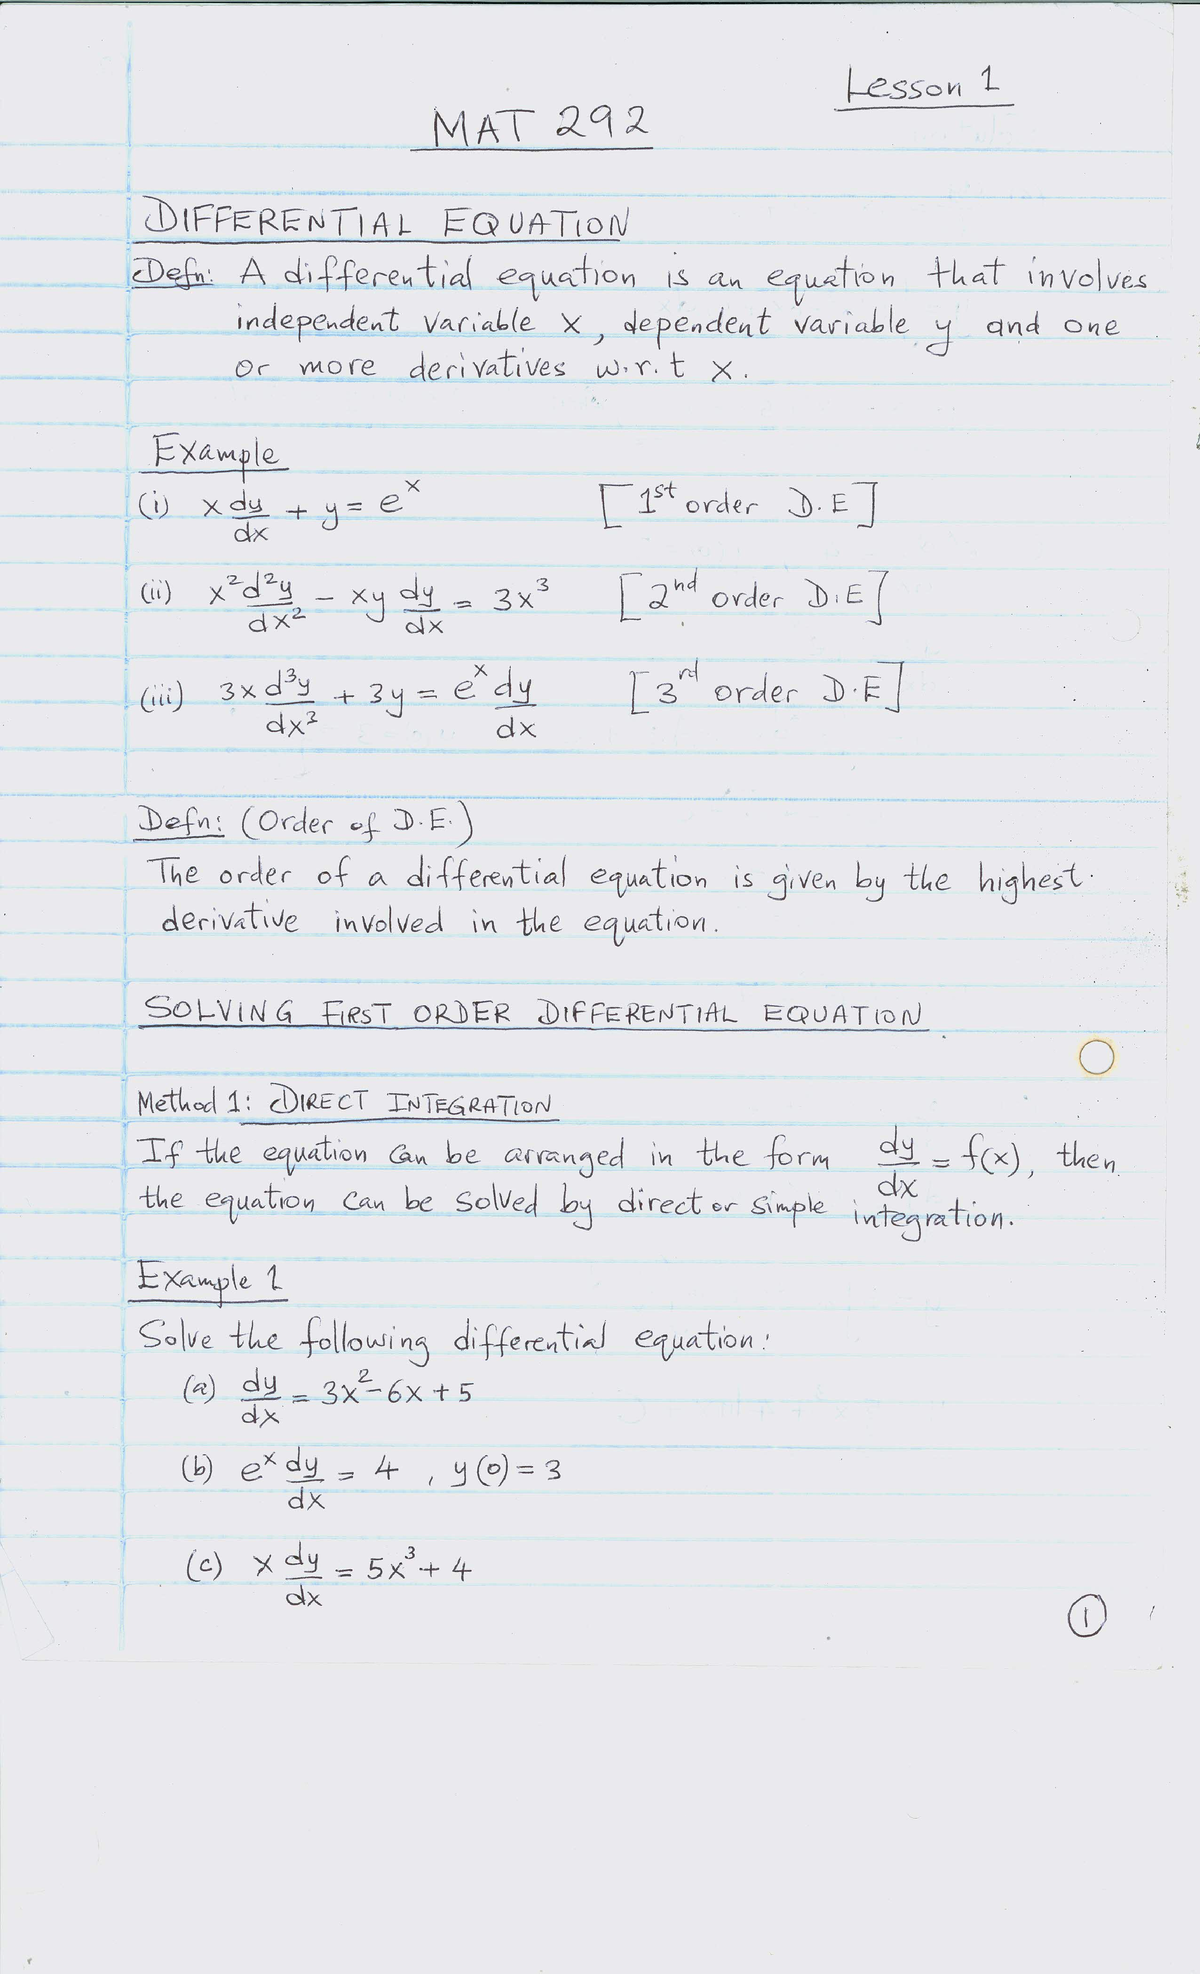 Lesson 1
MAT 292
DIFFERENTIAL EQUATION
Defn: A differential equation is an equation that involves
independent variable x, dependent variable y and one
or more derivatives w.r.t x.
Example
(i) x dy/dx + y = e^x [1st order D.E]
(ii) x²d²y/dx² - xy dy/dx = 3x³ [2nd order D.E]
(iii) 3x d³y/dx³ + 3y = e^x dy/dx [3rd order D.E]
Defn: (Order of D.E.)
The order of a differential equation is given by the highest
derivative involved in the equation.
SOLVING FIRST ORDER DIFFERENTIAL EQUATION
Method 1: DIRECT INTEGRATION
If the equation can be arranged in the form dy/dx = f(x), then
the equation can be solved by direct or simple integration.
Example 1
Solve the following differential equation:
(a) dy/dx = 3x²-6x+5
(b) e^x dy/dx = 4 , y(0) = 3
(c) x dy/dx = 5x³+4
1